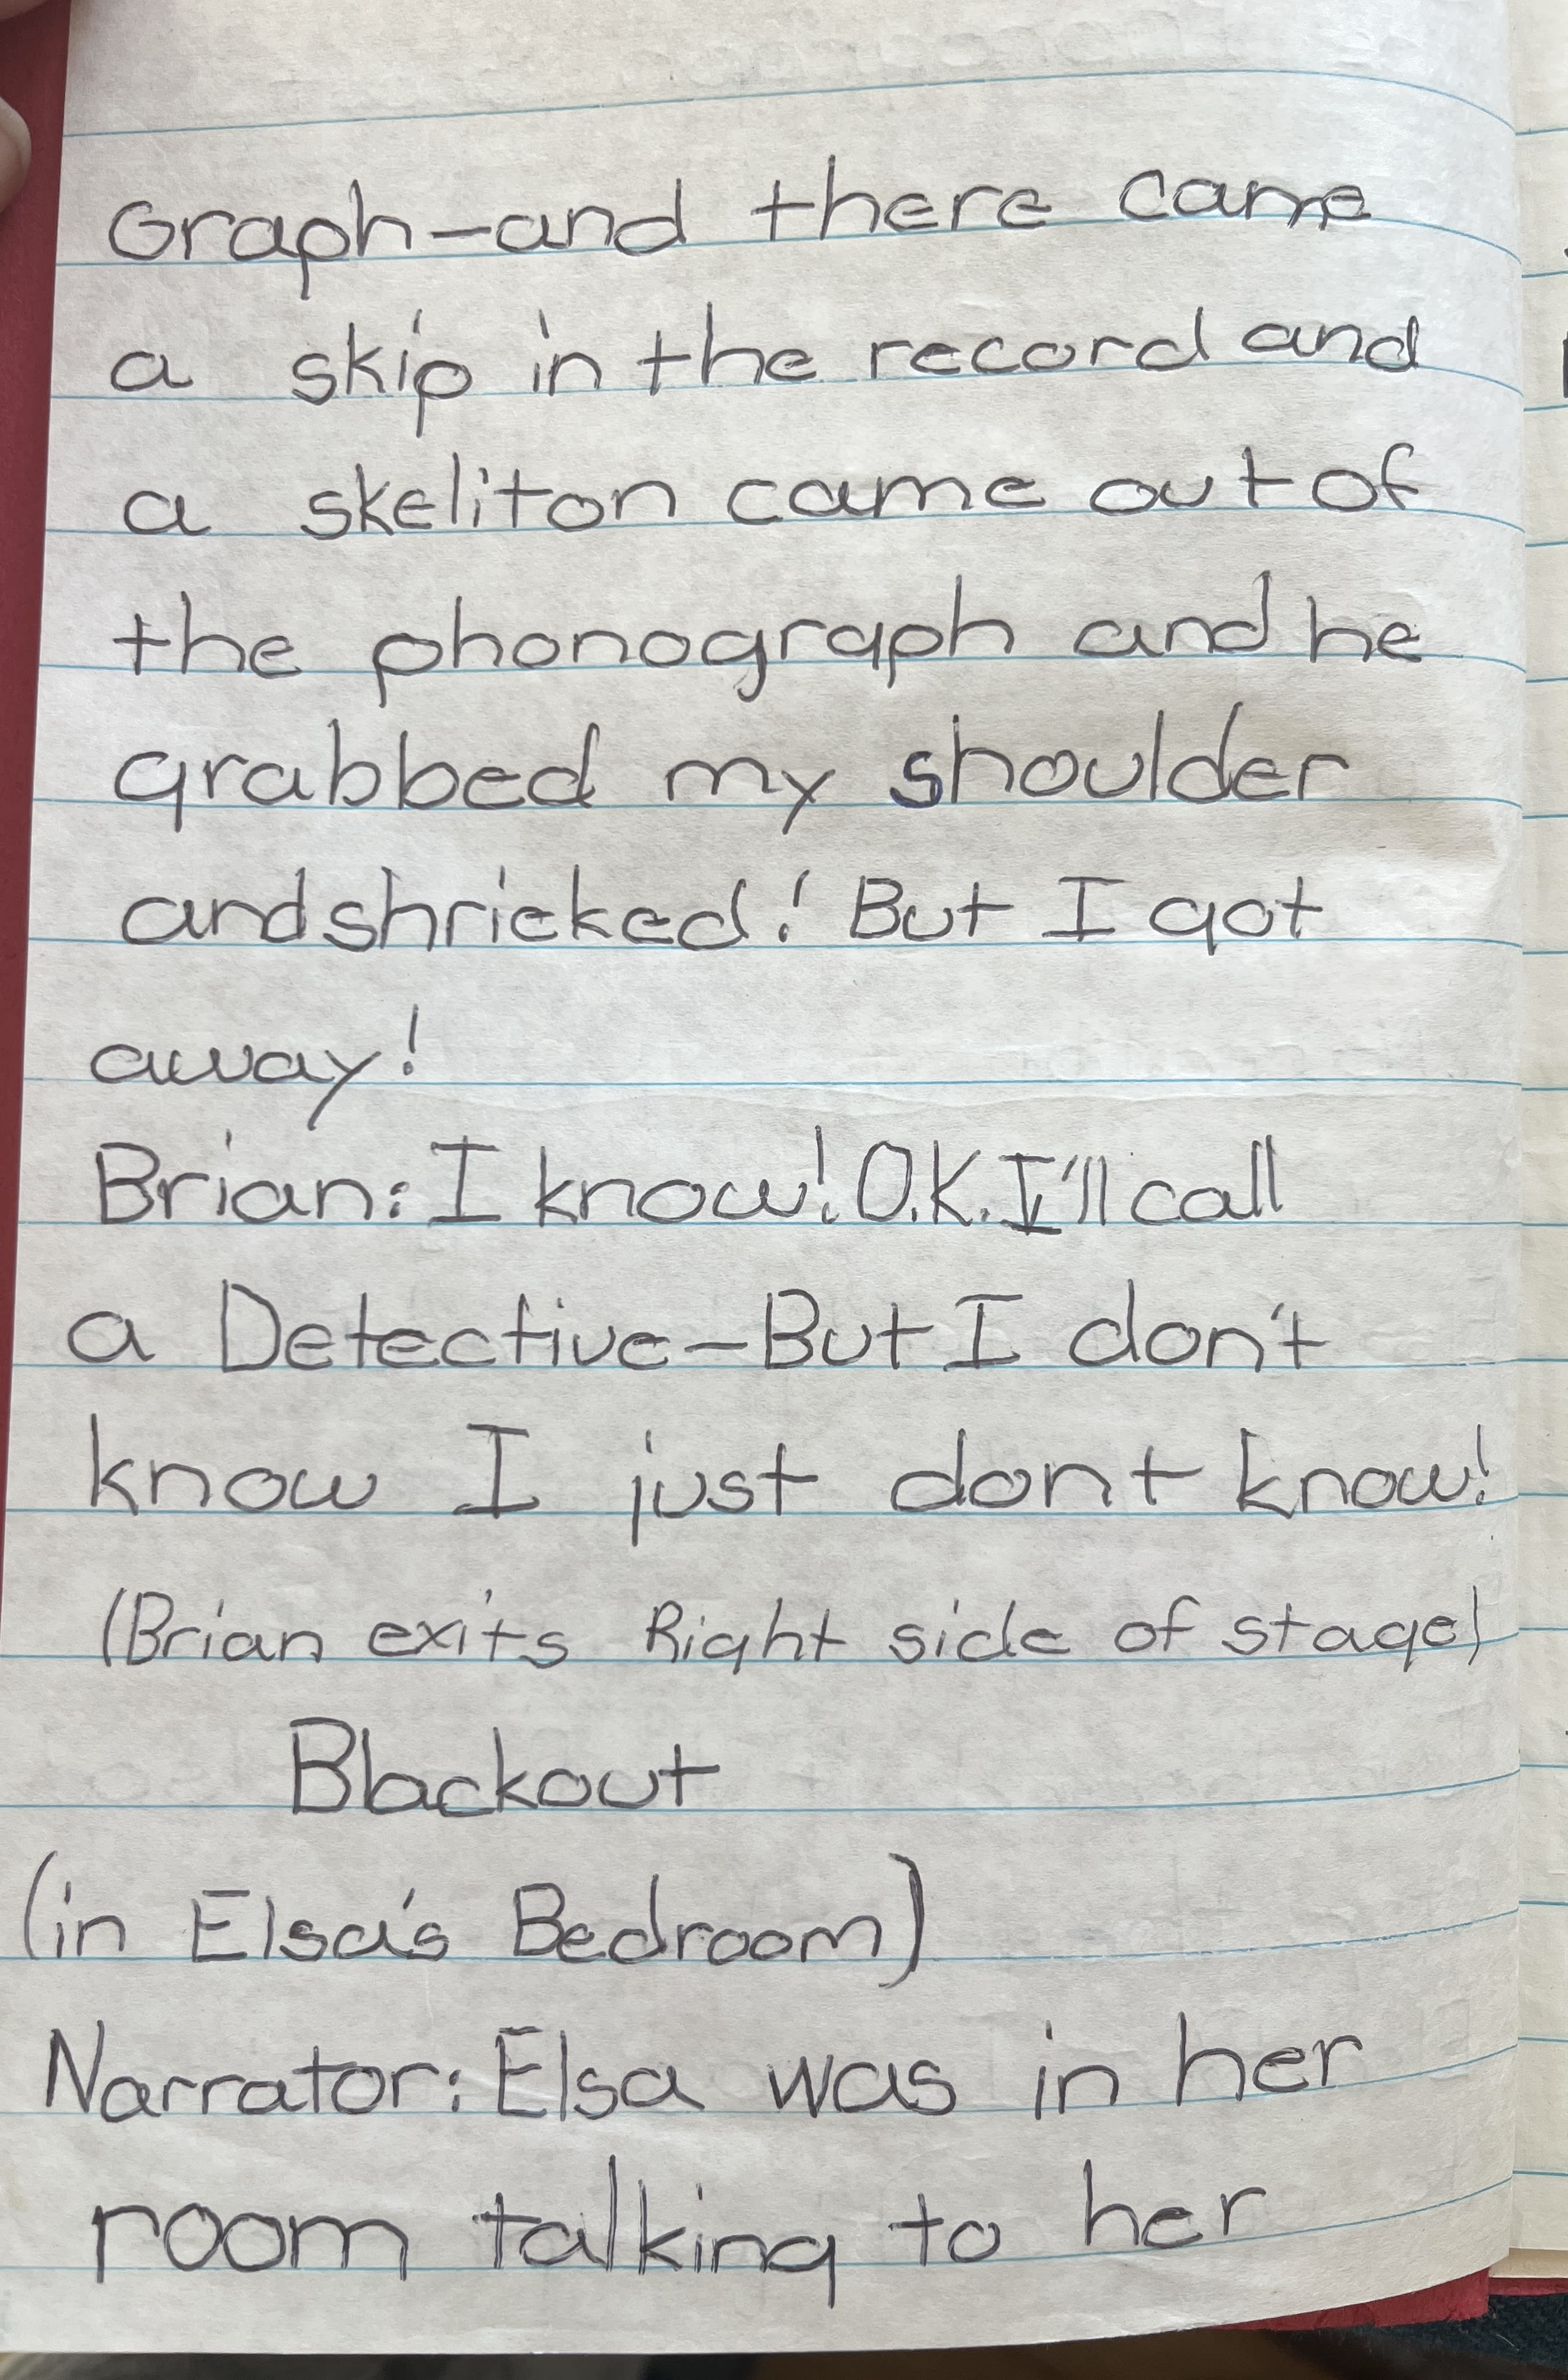 Graph-and there came
a skip in the record and
a skeliton came out of
the phonograph and he
grabbed my shoulder
and shrieked! But I got
away!
Brian: I know! O.K. I'll call
a Detective-But I don't
know I just dont know!
(Brian exits Right side of stage)
Blackout
(in Elsa's Bedroom)
Narrator: Elsa was in her
room talking to her